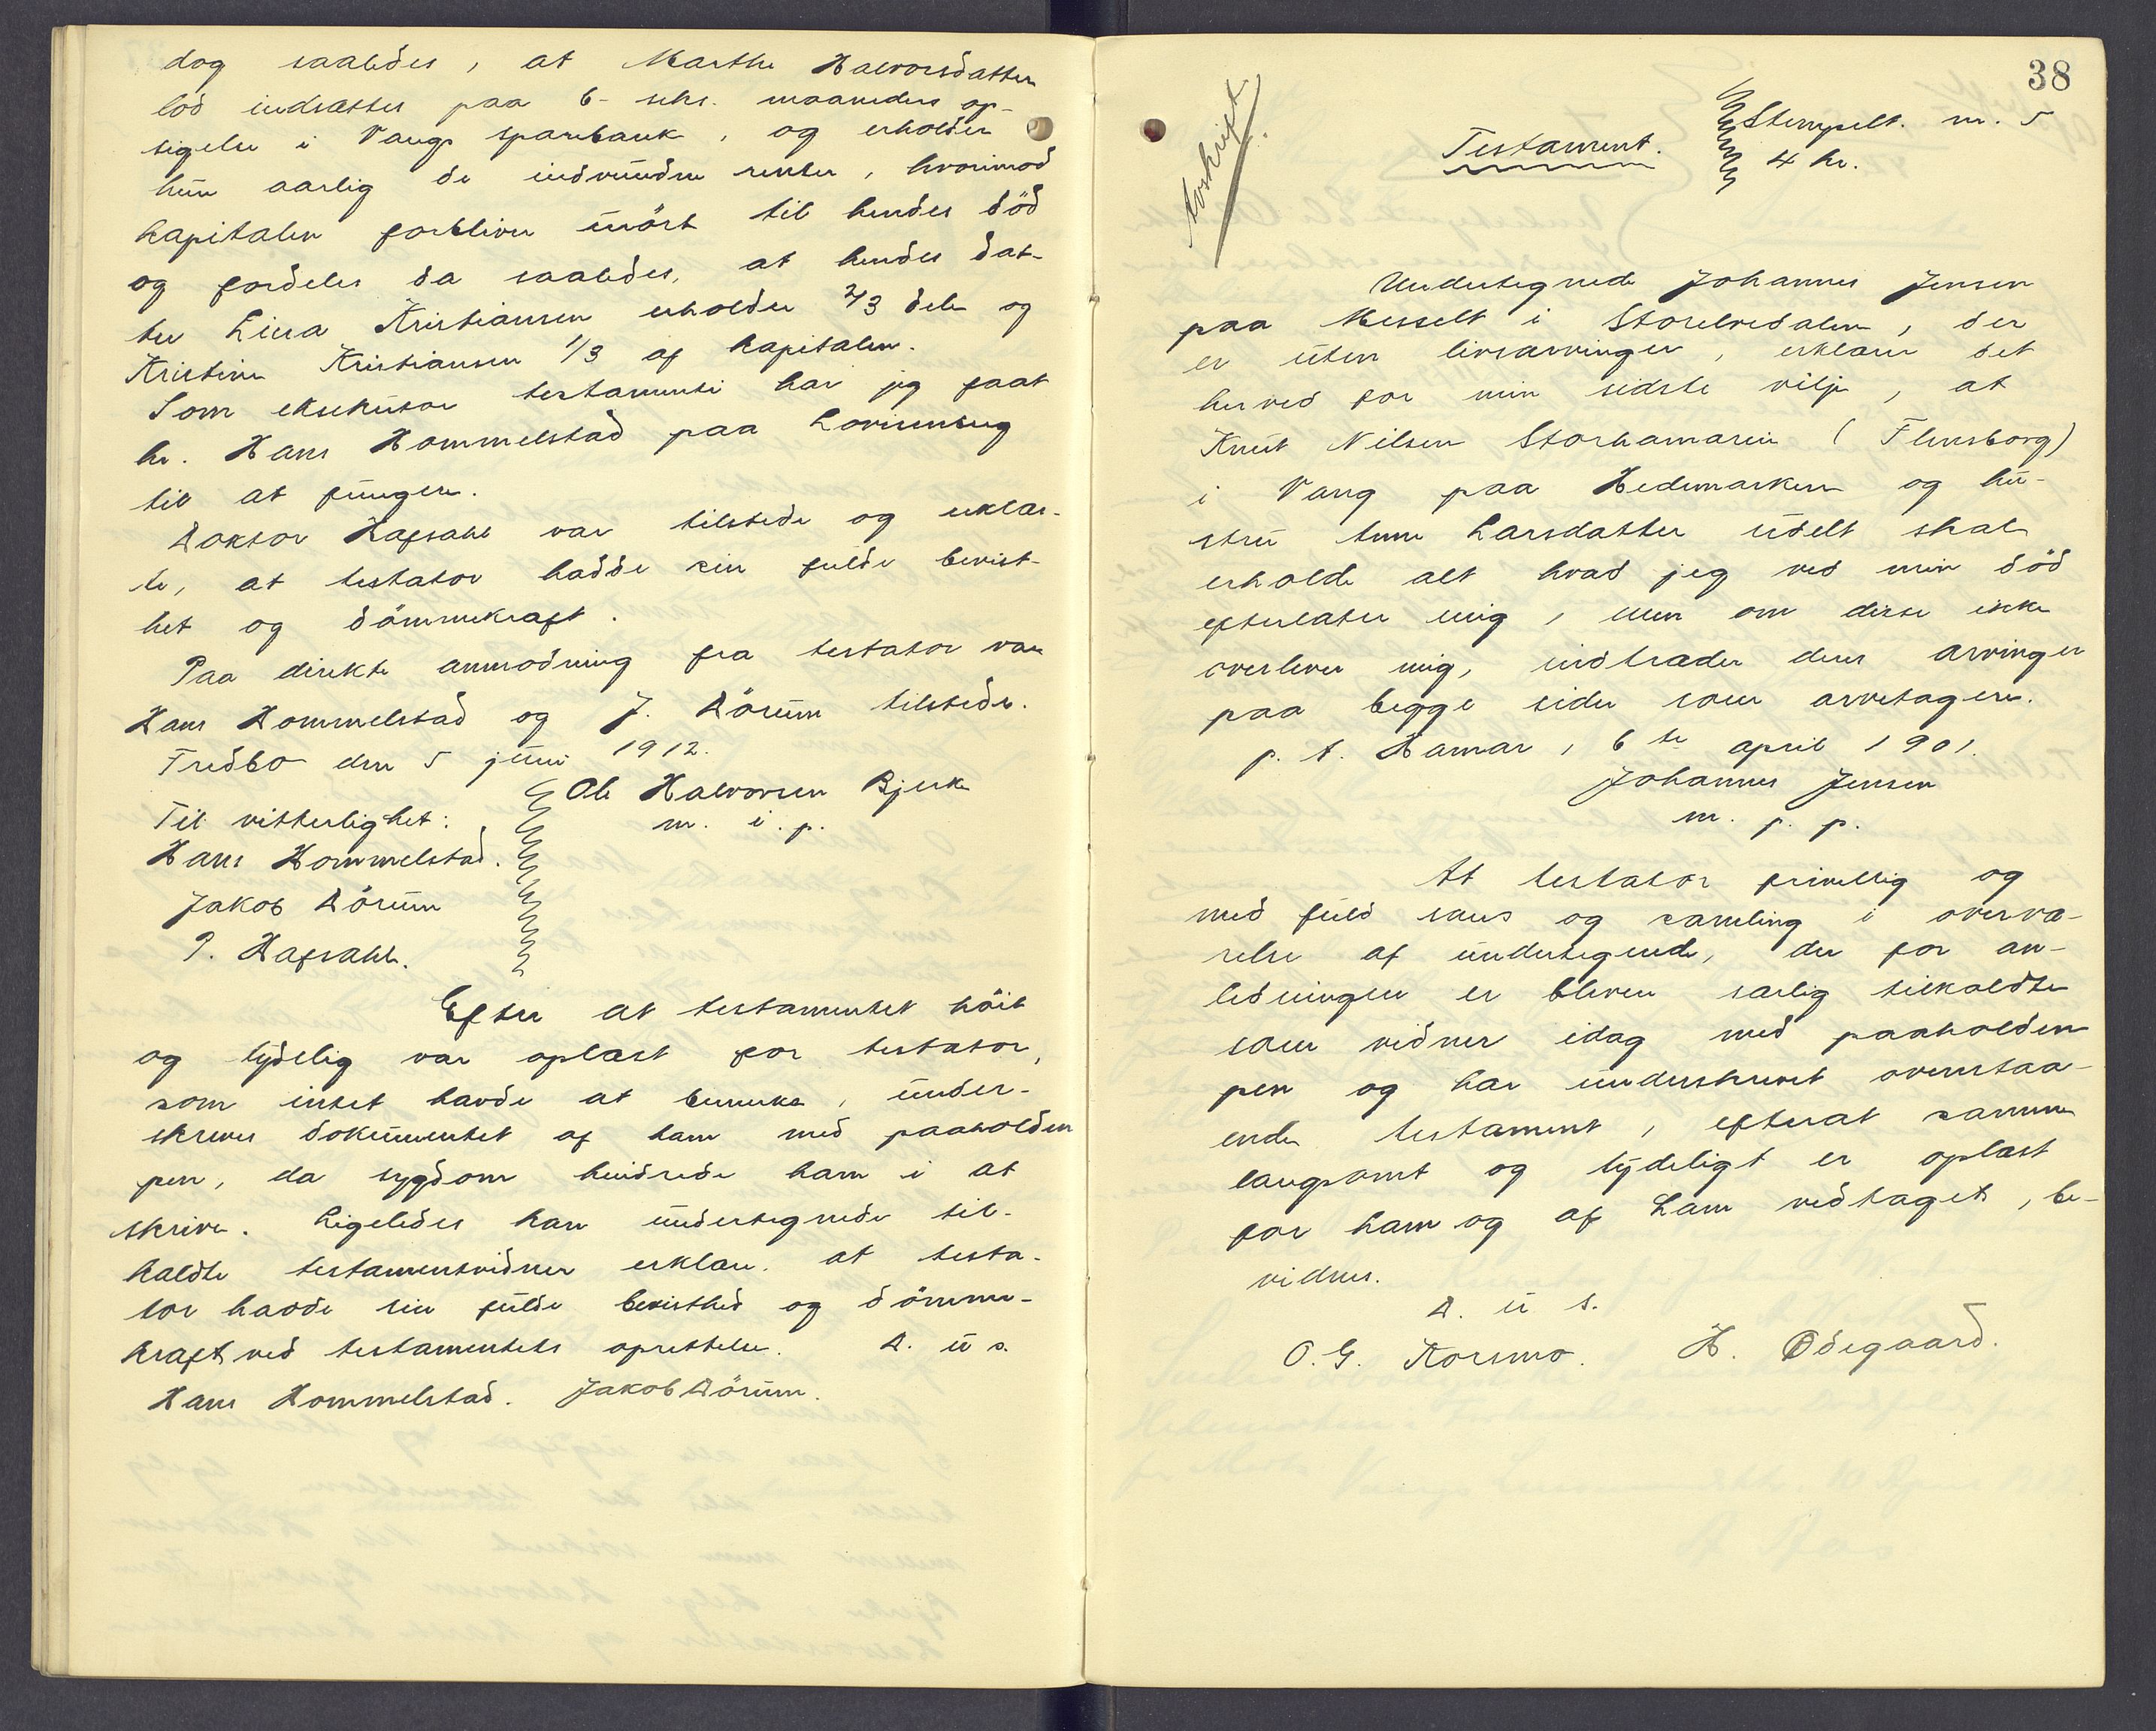 dog saaledes, at Marthe Halvorsdatters
lod indsættes paa 6- seks. maaneders op-
sigelse i Vangs sparebank, og erholder
hun aarlig de indvundne renter, hvorimod
kapitalen forbliver urört til hendes död
og fordeles da saaledes, at hendes dat-
ter Lina Kristiansen erholder 2/3 dele og
Kristine Kristiansen 1/3 af kapitalen.
Som eksekutor testamenti har jeg faat
hr. Hans Hommelstad paa Lovisenberg
til at fungere.
Doktor Hafsahl var tilstede og erklær-
te, at testator hadde sin fulde bevist-
het og dömmekraft.
Paa direkte anmodning fra testator var
Hans Hommelstad og J. Dörum tilstede.
Fredbo den 5 juni 1912.
Ole Halvorsen Bjerke
Til vitterlighet: m. i. p.
Hans Hommelstad.
Jakob Dörum
P. Hafsahl.
Efter at testamentet höit
og tydelig var oplæst for testator,
som intet havde at bemerke, under-
skreves dokumentet af ham med paaholden
pen, da sygdom hindrede ham i at
skrive. Ligeledes kan undertegnede til-
kaldte testamentvidner erklære at testa-
tor havde sin fulde bevisthed og dömme-
kraft ved testamentets oprettelse. D. u s.
Hans Hommelstad. Jakob Dörum.
38
Avskrift.
Stempelt. m. 5
Testament. 4 kr.
Undertegnede Johannes Jensen
paa Messelt i Storelvedalen, der
er uten livsarvinger, erklærer det
herved for min sidste vilje, at
Knut Nilsen Storhamarein (Flensborg)
i Vang paa Hedemarken og hu-
stru Anne Larsdatter udelt skal
erholde alt hvad jeg ved min död
efterlater mig, men om disse ikke
overlever mig, indtræder deres arvinger
paa begge sider som arvetagere.
p. t. Hamar, 6te april 1901.
Johannes Jensen
m. p. p.
At testator frivillig og
med fuld sans og samling i overvæ-
relse af undertegnede, der for an-
ledningen er bleven særlig tilkaldte
som vidner idag med paaholden
pen og har underskrevet ovenstaa-
ende testament, efterat samme
langsomt og tydeligt er oplæst
for ham og af ham vedtaget, be-
vidnes.
D. u s.
O. G. Korsmo. H. Ödegaard.